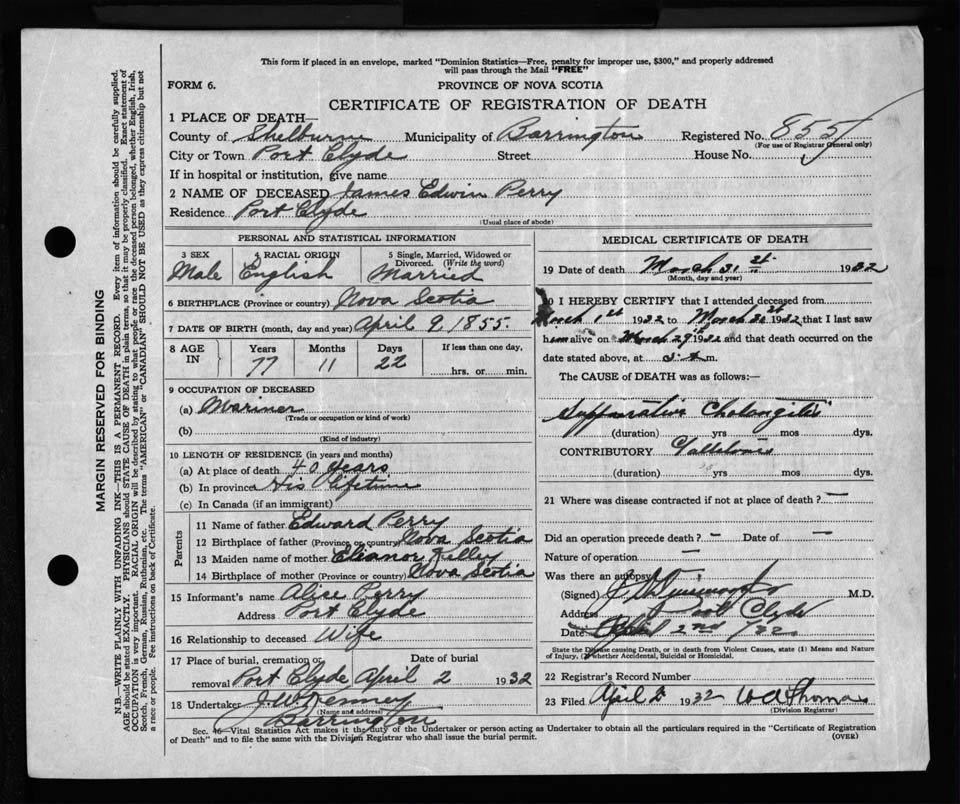 This form if placed in an envelope, marked "Dominion Statistics—Free, penalty for improper use, $300," and properly addressed
will pass through the Mail "FREE"
FORM 6. PROVINCE OF NOVA SCOTIA
CERTIFICATE OF REGISTRATION OF DEATH
1 PLACE OF DEATH—
County of Shelburne Municipality of Barrington Registered No. 855
(For use of Registrar General only)
City or Town Port Clyde Street House No.
If in hospital or institution, give name
2 NAME OF DECEASED James Edwin Perry
Residence Port Clyde
(Usual place of abode)
PERSONAL AND STATISTICAL INFORMATION
3 SEX 4 RACIAL ORIGIN 5 Single, Married, Widowed or
Divorced. (Write the word)
Male English Married
6 BIRTHPLACE (Province or country) Nova Scotia
7 DATE OF BIRTH (month, day and year) April 9, 1855.
8 AGE IN Years Months Days If less than one day,
77 11 22 hrs. or min.
9 OCCUPATION OF DECEASED
(a) Mariner
(Trade or occupation or kind of work)
(b)
(Kind of industry)
10 LENGTH OF RESIDENCE (in years and months)
(a) At place of death 40 years
(b) In province His lifetime
(c) In Canada (if an immigrant)
Parents
11 Name of father Edward Perry
12 Birthplace of father (Province or country) Nova Scotia
13 Maiden name of mother Eleanor Kelley
14 Birthplace of mother (Province or country) Nova Scotia
15 Informant's name Alice Perry
Address Port Clyde
16 Relationship to deceased Wife
17 Place of burial, cremation or Date of burial
removal Port Clyde April 2 1932
18 Undertaker J.W. Kenney
(Name and address)
Barrington
MEDICAL CERTIFICATE OF DEATH
19 Date of death March 31 st 1932
(Month, day and year)
20 I HEREBY CERTIFY that I attended deceased from
March 1st 1932 to March 1932 that I last saw
him alive on March 29th 1932 and that death occurred on the
date stated above, at m.
The CAUSE of DEATH was as follows:—
Suppurative Cholangitis
(duration) yrs mos dys.
CONTRIBUTORY Gallstones
(duration) yrs mos dys.
21 Where was disease contracted if not at place of death? —
Did an operation precede death? — Date of —
Nature of operation —
Was there an autopsy
(Signed) M.D.
Address Port Clyde
Date April 2nd /32
State the Disease causing Death, or in death from Violent Causes, state (1) Means and Nature
of Injury, (2) whether Accidental, Suicidal or Homicidal.
22 Registrar's Record Number
23 Filed April 2 1932 W A Thomas
(Division Registrar)
Sec. 46—Vital Statistics Act makes it the duty of the Undertaker or person acting as Undertaker to obtain all the particulars required in the "Certificate of Registration
of Death" and to file the same with the Division Registrar who shall issue the burial permit.
(OVER)
MARGIN RESERVED FOR BINDING
N.B.—WRITE PLAINLY WITH UNFADING INK—THIS IS A PERMANENT RECORD. Every item of information should be carefully supplied.
AGE should be stated EXACTLY. PHYSICIANS should STATE CAUSE OF DEATH in plain terms, so that it may be properly classified. Exact statement of
OCCUPATION is very important. RACIAL ORIGIN will be described by stating to what people or race the deceased person belonged, whether English, Irish,
Scotch, French, German, Russian, Ruthenian, etc. The terms "AMERICAN" or "CANADIAN" SHOULD NOT BE USED as they express citizenship but not
a race or people. See instructions on back of Certificate.